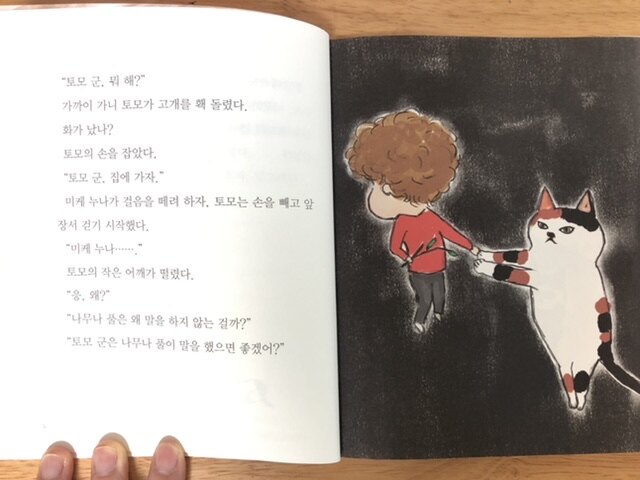 “토모 군, 뭐 해?”
가까이 가니 토모가 고개를 홱 돌렸다.
화가 났나?
토모의 손을 잡았다.
“토모 군, 집에 가자.”
미케 누나가 걸음을 떼려 하자, 토모는 손을 빼고 앞
장서 걷기 시작했다.
“미케 누나…….”
토모의 작은 어깨가 떨렸다.
“응, 왜?”
“나무나 풀은 왜 말을 하지 않는 걸까?”
“토모 군은 나무나 풀이 말을 했으면 좋겠어?”